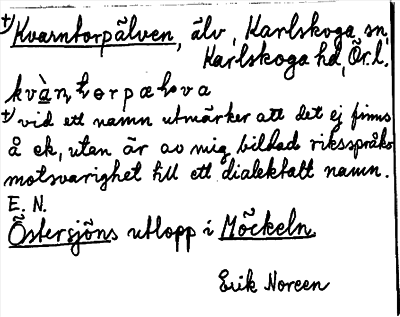 +) Kvarntorpälven, älv, Karlskoga sn,
Karlskoga hd, Ör. l.
+) vid ett namn utmärker att det ej finns
å ek, utan är av mig bildad riksspråks
motsvarighet till ett dialektalt namn.
E. N.
Östersjöns utlopp i Möckeln.
Erik Noreen